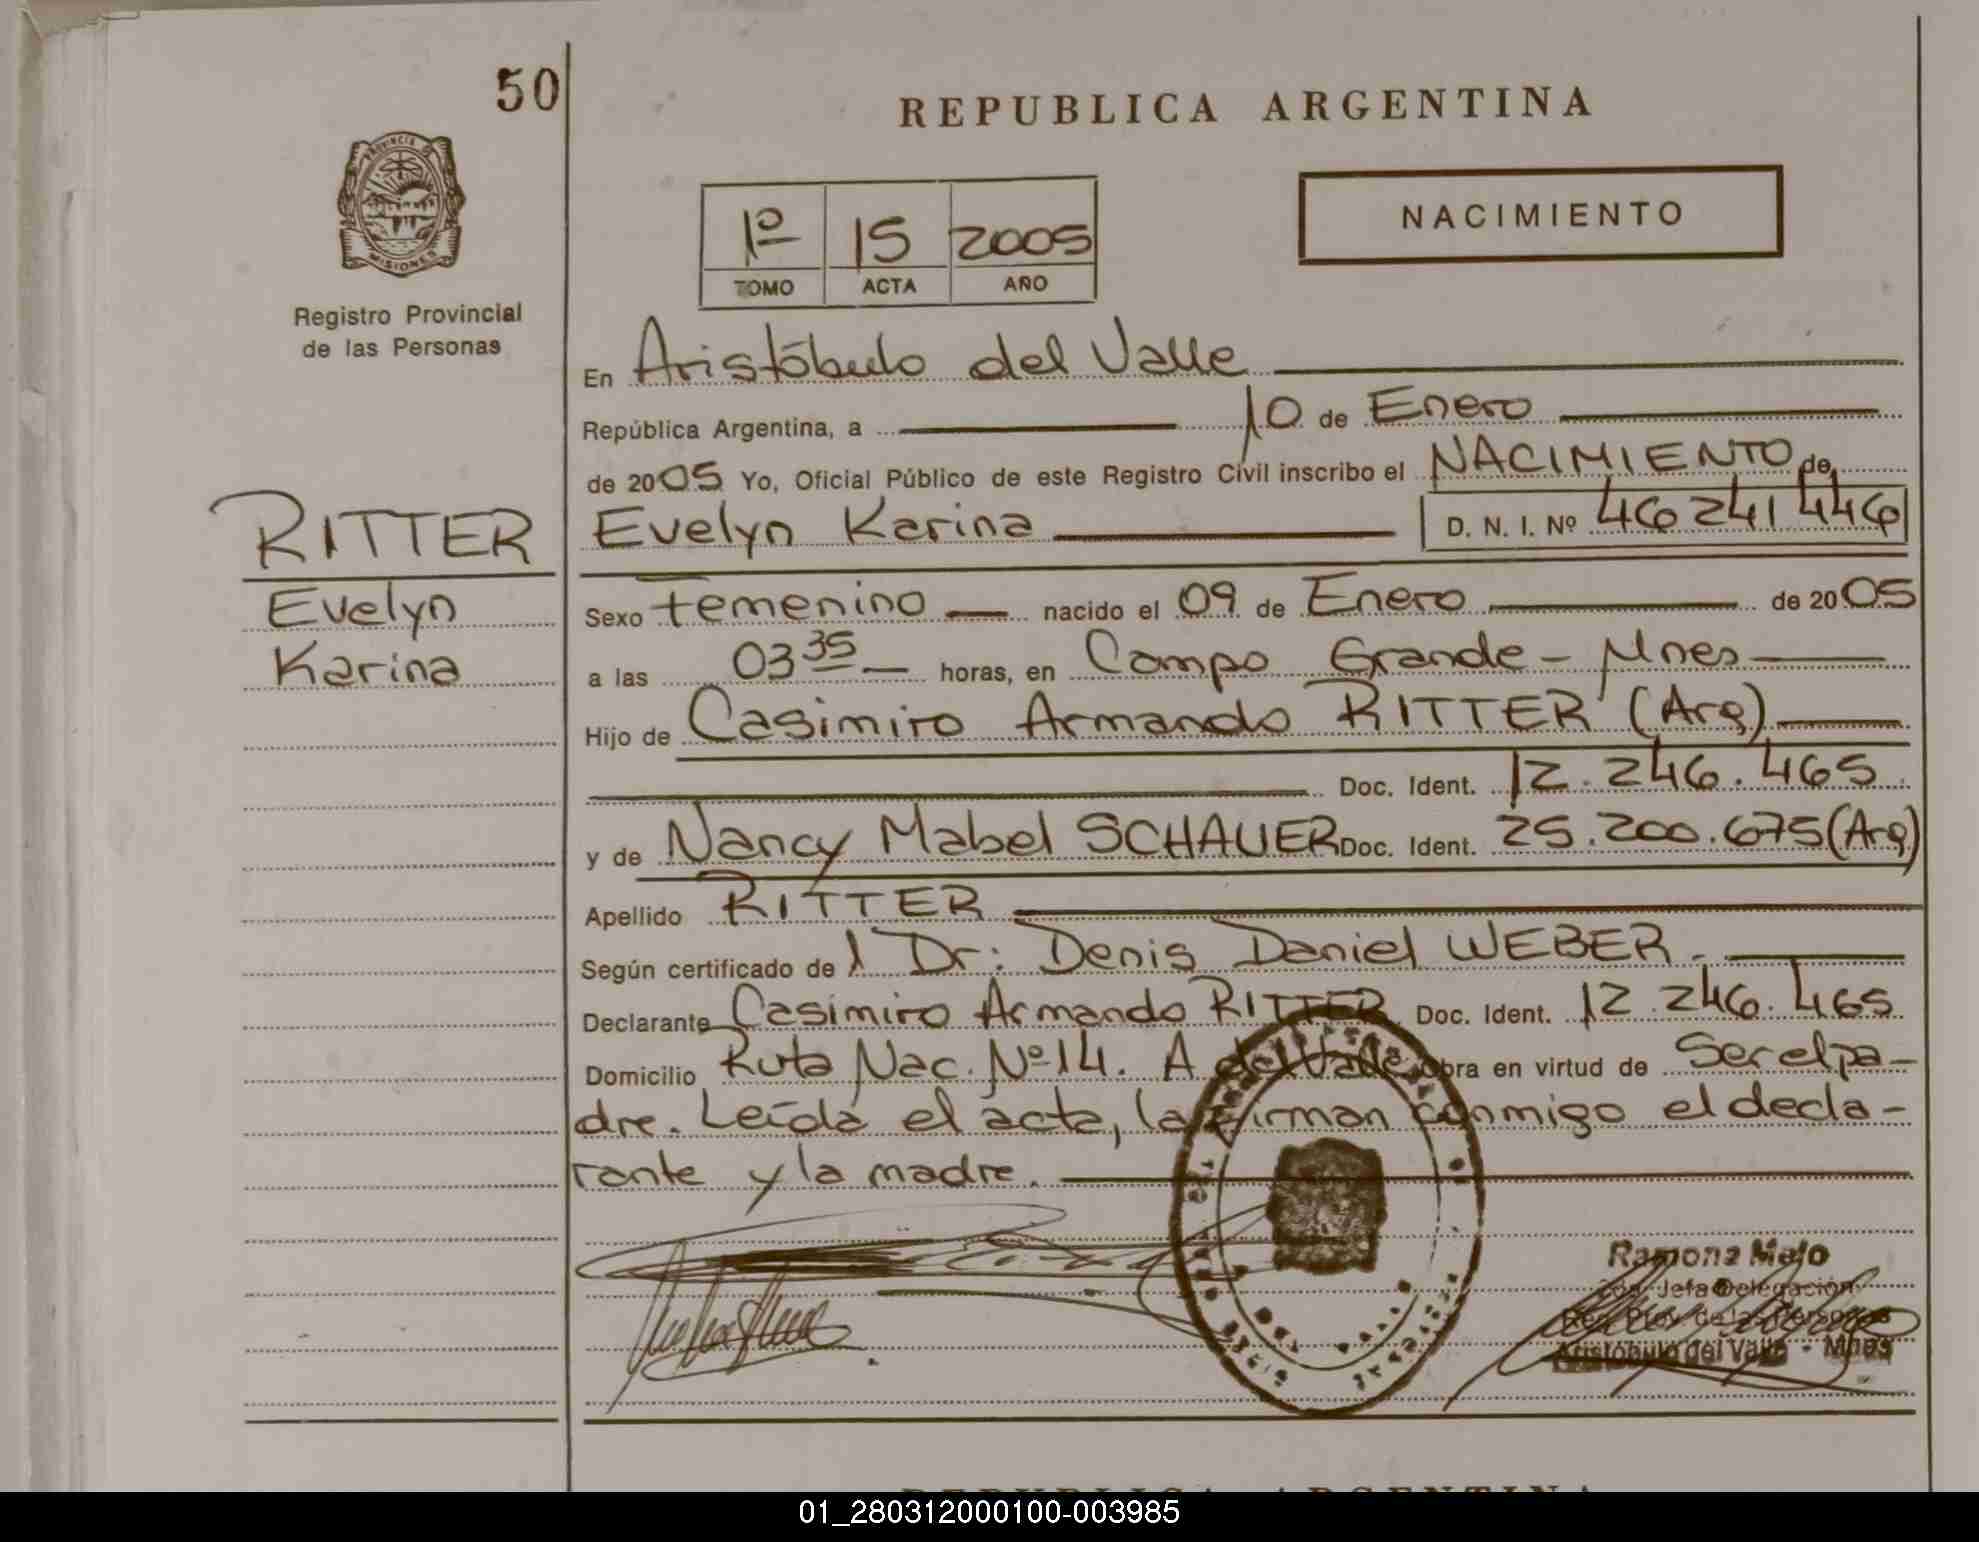 50
REPUBLICA ARGENTINA
NACIMIENTO
1º 15 2005
TOMO ACTA AÑO
PROVINCIA DE
MISIONES
Registro Provincial
de las Personas
En Aristóbulo del Valle
República Argentina, a 10 de Enero
de 2005 Yo, Oficial Público de este Registro Civil inscribo el NACIMIENTO de
RITTER
Evelyn
Karina
Evelyn Karina D. N. I. Nº 46 241 446
Sexo femenino nacido el 09 de Enero de 2005
a las 03 35 horas, en Campo Grande - Mnes
Hijo de Casimiro Armando RITTER (Arg)
Doc. Ident. 12.246.465
y de Nancy Mabel SCHAUER Doc. Ident. 25.200.675 (Arg)
Apellido RITTER
Según certificado de l Dr: Denis Daniel WEBER.
Declarante Casimiro Armando RITTER Doc. Ident. 12.246.465
Domicilio Ruta Nac. Nº 14. A del Valle Obra en virtud de Ser el pa-
dre. Leída el acta, la firman conmigo el decla-
rante y la madre.
Ramona Malo
Jefa Delegación
Reg. Prov. de las Personas
Aristóbulo del Valle - Mnes
REPUBLICA ARGENTINA
01_280312000100-003985